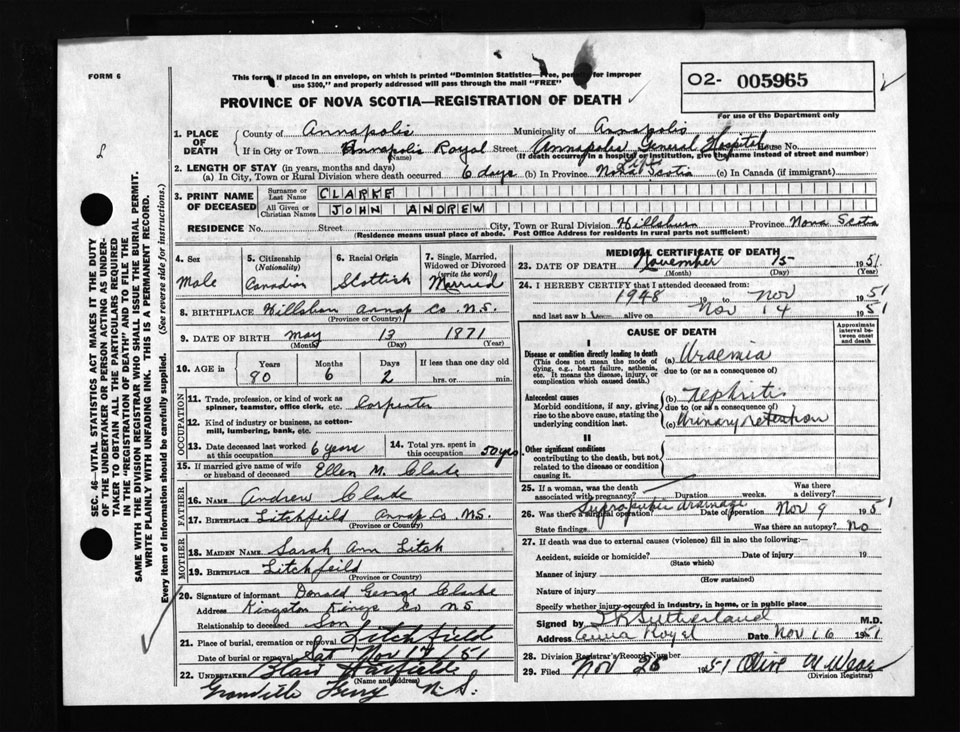 FORM 6
This form, if placed in an envelope, on which is printed "Dominion Statistics—Free, penalty for improper
use $300," and properly addressed will pass through the mail "FREE"
O2- 005965
For use of the Department only
PROVINCE OF NOVA SCOTIA—REGISTRATION OF DEATH
1. PLACE OF DEATH
County of Annapolis Municipality of Annapolis
If in City or Town Annapolis Royal Street Annapolis General Hospital House No.
(Name) (If death occurred in a hospital or institution, give the name instead of street and number)
2. LENGTH OF STAY (in years, months and days)
(a) In City, Town or Rural Division where death occurred 6 days (b) In Province Nova Scotia (c) In Canada (if immigrant)
3. PRINT NAME OF DECEASED
Surname or Last Name CLARKE
All Given or Christian Names JOHN ANDREW
RESIDENCE No. Street City, Town or Rural Division Hillsburn Province Nova Scotia
(Residence means usual place of abode. Post Office Address for residents in rural parts not sufficient)
4. Sex
Male
5. Citizenship
(Nationality)
Canadian
6. Racial Origin
Scottish
7. Single, Married,
Widowed or Divorced
(write the word)
Married
8. BIRTHPLACE Hillsburn Annap Co. N.S.
(Province or Country)
9. DATE OF BIRTH May 13 1871
(Month) (Day) (Year)
10. AGE in
Years 80
Months 6
Days 2
If less than one day old
hrs. or min.
OCCUPATION
11. Trade, profession, or kind of work as
spinner, teamster, office clerk, etc. Carpenter
12. Kind of industry or business, as cotton-
mill, lumbering, bank, etc.
13. Date deceased last worked
at this occupation 6 years
14. Total yrs. spent in
this occupation 50 yrs
15. If married give name of wife
or husband of deceased Ellen M. Clarke
FATHER
16. NAME Andrew Clarke
17. BIRTHPLACE Litchfeild Annap. Co. N.S.
(Province or Country)
MOTHER
18. MAIDEN NAME Sarah Ann Litch
19. BIRTHPLACE Litchfeild
(Province or Country)
20. Signature of informant Donald George Clarke
Address Kingston Kings Co N.S
Relationship to deceased Son
21. Place of burial, cremation or removal Litchfield
Date of burial or removal Sat Nov 17/51
22. UNDERTAKER
(Name and address)
Granville Ferry N. S.
MEDICAL CERTIFICATE OF DEATH
23. DATE OF DEATH November 15 1951
(Month) (Day)
24. I HEREBY CERTIFY that I attended deceased from:
1948 19 to Nov 1951
and last saw h alive on Nov 14 1951
CAUSE OF DEATH
Approximate
interval be-
tween onset
and death
I
Disease or condition directly leading to death
(This does not mean the mode of
dying, e.g., heart failure, asthenia,
etc. It means the disease, injury, or
complication which caused death.)
(a) Uraemia
due to (or as a consequence of)
Antecedent causes
Morbid conditions, if any, giving
rise to the above cause, stating the
underlying condition last.
(b) Nephritis
due to (or as a consequence of)
(c) Urinary retention
II
Other significant conditions
contributing to the death, but not
related to the disease or condition
causing it.
25. If a woman, was the death
associated with pregnancy? Duration weeks. Was there
a delivery?
Suprapubic drainage
26. Was there a surgical operation? Date of operation Nov 9 1951
State findings Was there an autopsy? No
27. If death was due to external causes (violence) fill in also the following:—
Accident, suicide or homicide? Date of injury 19
(State which)
Manner of injury
(How sustained)
Nature of injury
Specify whether injury occurred in industry, in home, or in public place
Signed by Sutherland M.D.
Address Royal Date Nov 16 1951
28. Division Registrar's Record Number
29. Filed Nov 1951 Olive
(Division Registrar)
SEC. 46—VITAL STATISTICS ACT MAKES IT THE DUTY
OF THE UNDERTAKER OR PERSON ACTING AS UNDER-
TAKER TO OBTAIN ALL THE PARTICULARS REQUIRED
IN THE "REGISTRATION OF DEATH" AND TO FILE THE
SAME WITH THE DIVISION REGISTRAR WHO SHALL ISSUE THE BURIAL PERMIT.
WRITE PLAINLY WITH UNFADING INK. THIS IS A PERMANENT RECORD.
Every item of information should be carefully supplied. (See reverse side for instructions.)